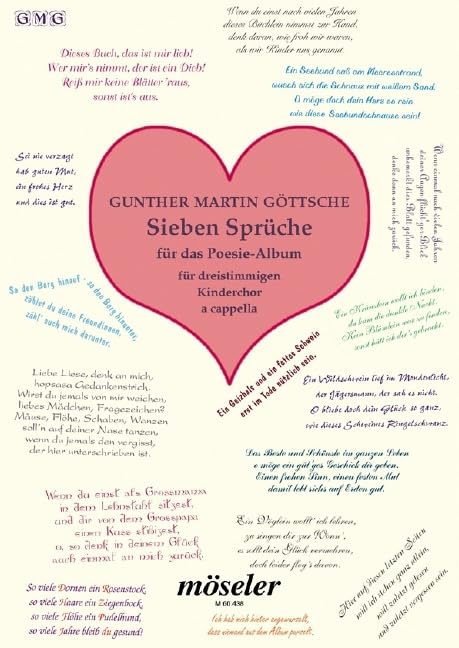 GMG
Wenn du einst nach vielen Jahren
dieses Büchlein nimmst zur Hand,
denk daran, wie froh wir waren,
als wir Kinder uns genannt.
Dieses Buch, das ist mir lieb!
Wer mir's nimmt, der ist ein Dieb!
Reiß mir keine Blätter 'raus,
sonst ist's aus.
Ein Seehund saß am Meeresstrand,
wusch sich die Schnauz mit weißem Sand.
O möge doch dein Herz so rein
wie diese Seehundschnauze sein!
Sei nie verzagt
hab guten Mut,
ein frohes Herz
und dies ist gut.
Wenn einmal nach vielen Jahren
deiner Augen flücht'ger Blick
unbemerkt dies Blatt gefunden,
denke dann an mich zurück.
GUNTHER MARTIN GÖTTSCHE
Sieben Sprüche
für das Poesie-Album
für dreistimmigen
Kinderchor
a cappella
So den Berg hinauf - so den Berg hinunter,
zählst du deine Freundinnen,
zähl' auch mich darunter.
Ein Kränzlein wollt ich binden,
da kam die dunkle Nacht.
Kein Blümlein war zu finden,
sonst hätt ich dir's gebracht.
Ein Geizhals und ein fettes Schwein
erst im Tode nützlich sein.
Liebe Liese, denk an mich,
hopsasa Gedankenstrich.
Wirst du jemals von mir weichen,
liebes Mädchen, Fragezeichen?
Mäuse, Flöhe, Schaben, Wanzen
soll'n auf deiner Nase tanzen,
wenn du jemals den vergisst,
der hier unterschrieben ist.
Ein Wildschwein lief im Mondenlicht,
der Jägersmann, der sah es nicht.
O bliebe doch dein Glück so ganz,
wie dieses Schweines Ringelschwanz.
Das Beste und Schönste im ganzen Leben
o möge ein gut'ges Geschick dir geben.
Einen frohen Sinn, einen festen Mut
damit lebt sichs auf Erden gut.
Wenn du einst als Grossmama
in dem Lehnstuhl sitzest,
und dir von dem Grosspapa
einen Kuss stibitzest,
o, so denk in deinem Glück
auch einmal an mich zurück.
Ein Vöglein wollt' ich lehren,
zu singen dir zur Wonn',
es sollt dein Glück vermehren,
doch leider flog's davon.
Hier auf diesen letzten Seiten
will ich stehen ganz allein,
will zuletzt gelesen
und zuletzt vergessen sein.
So viele Dornen ein Rosenstock,
so viele Haare ein Ziegenbock,
so viele Flöhe ein Pudelhund,
so viele Jahre bleib du gesund!
möseler
M 60.438
Ich hab mich hinten angewurzelt,
dass niemand aus dem Album purzelt.